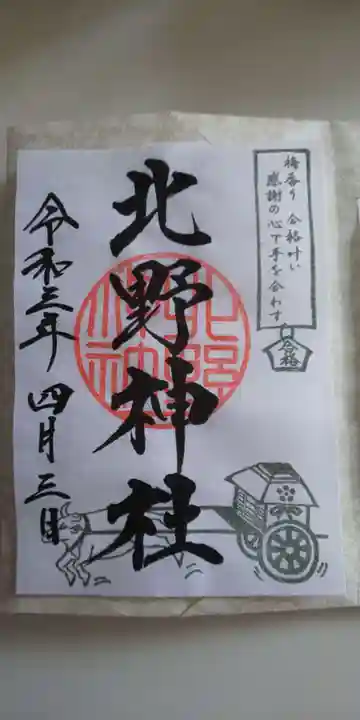 梅香り 合格叶い
感謝の心で手を合わす
合格
北野神社
北野神社
令和三年 四月三日